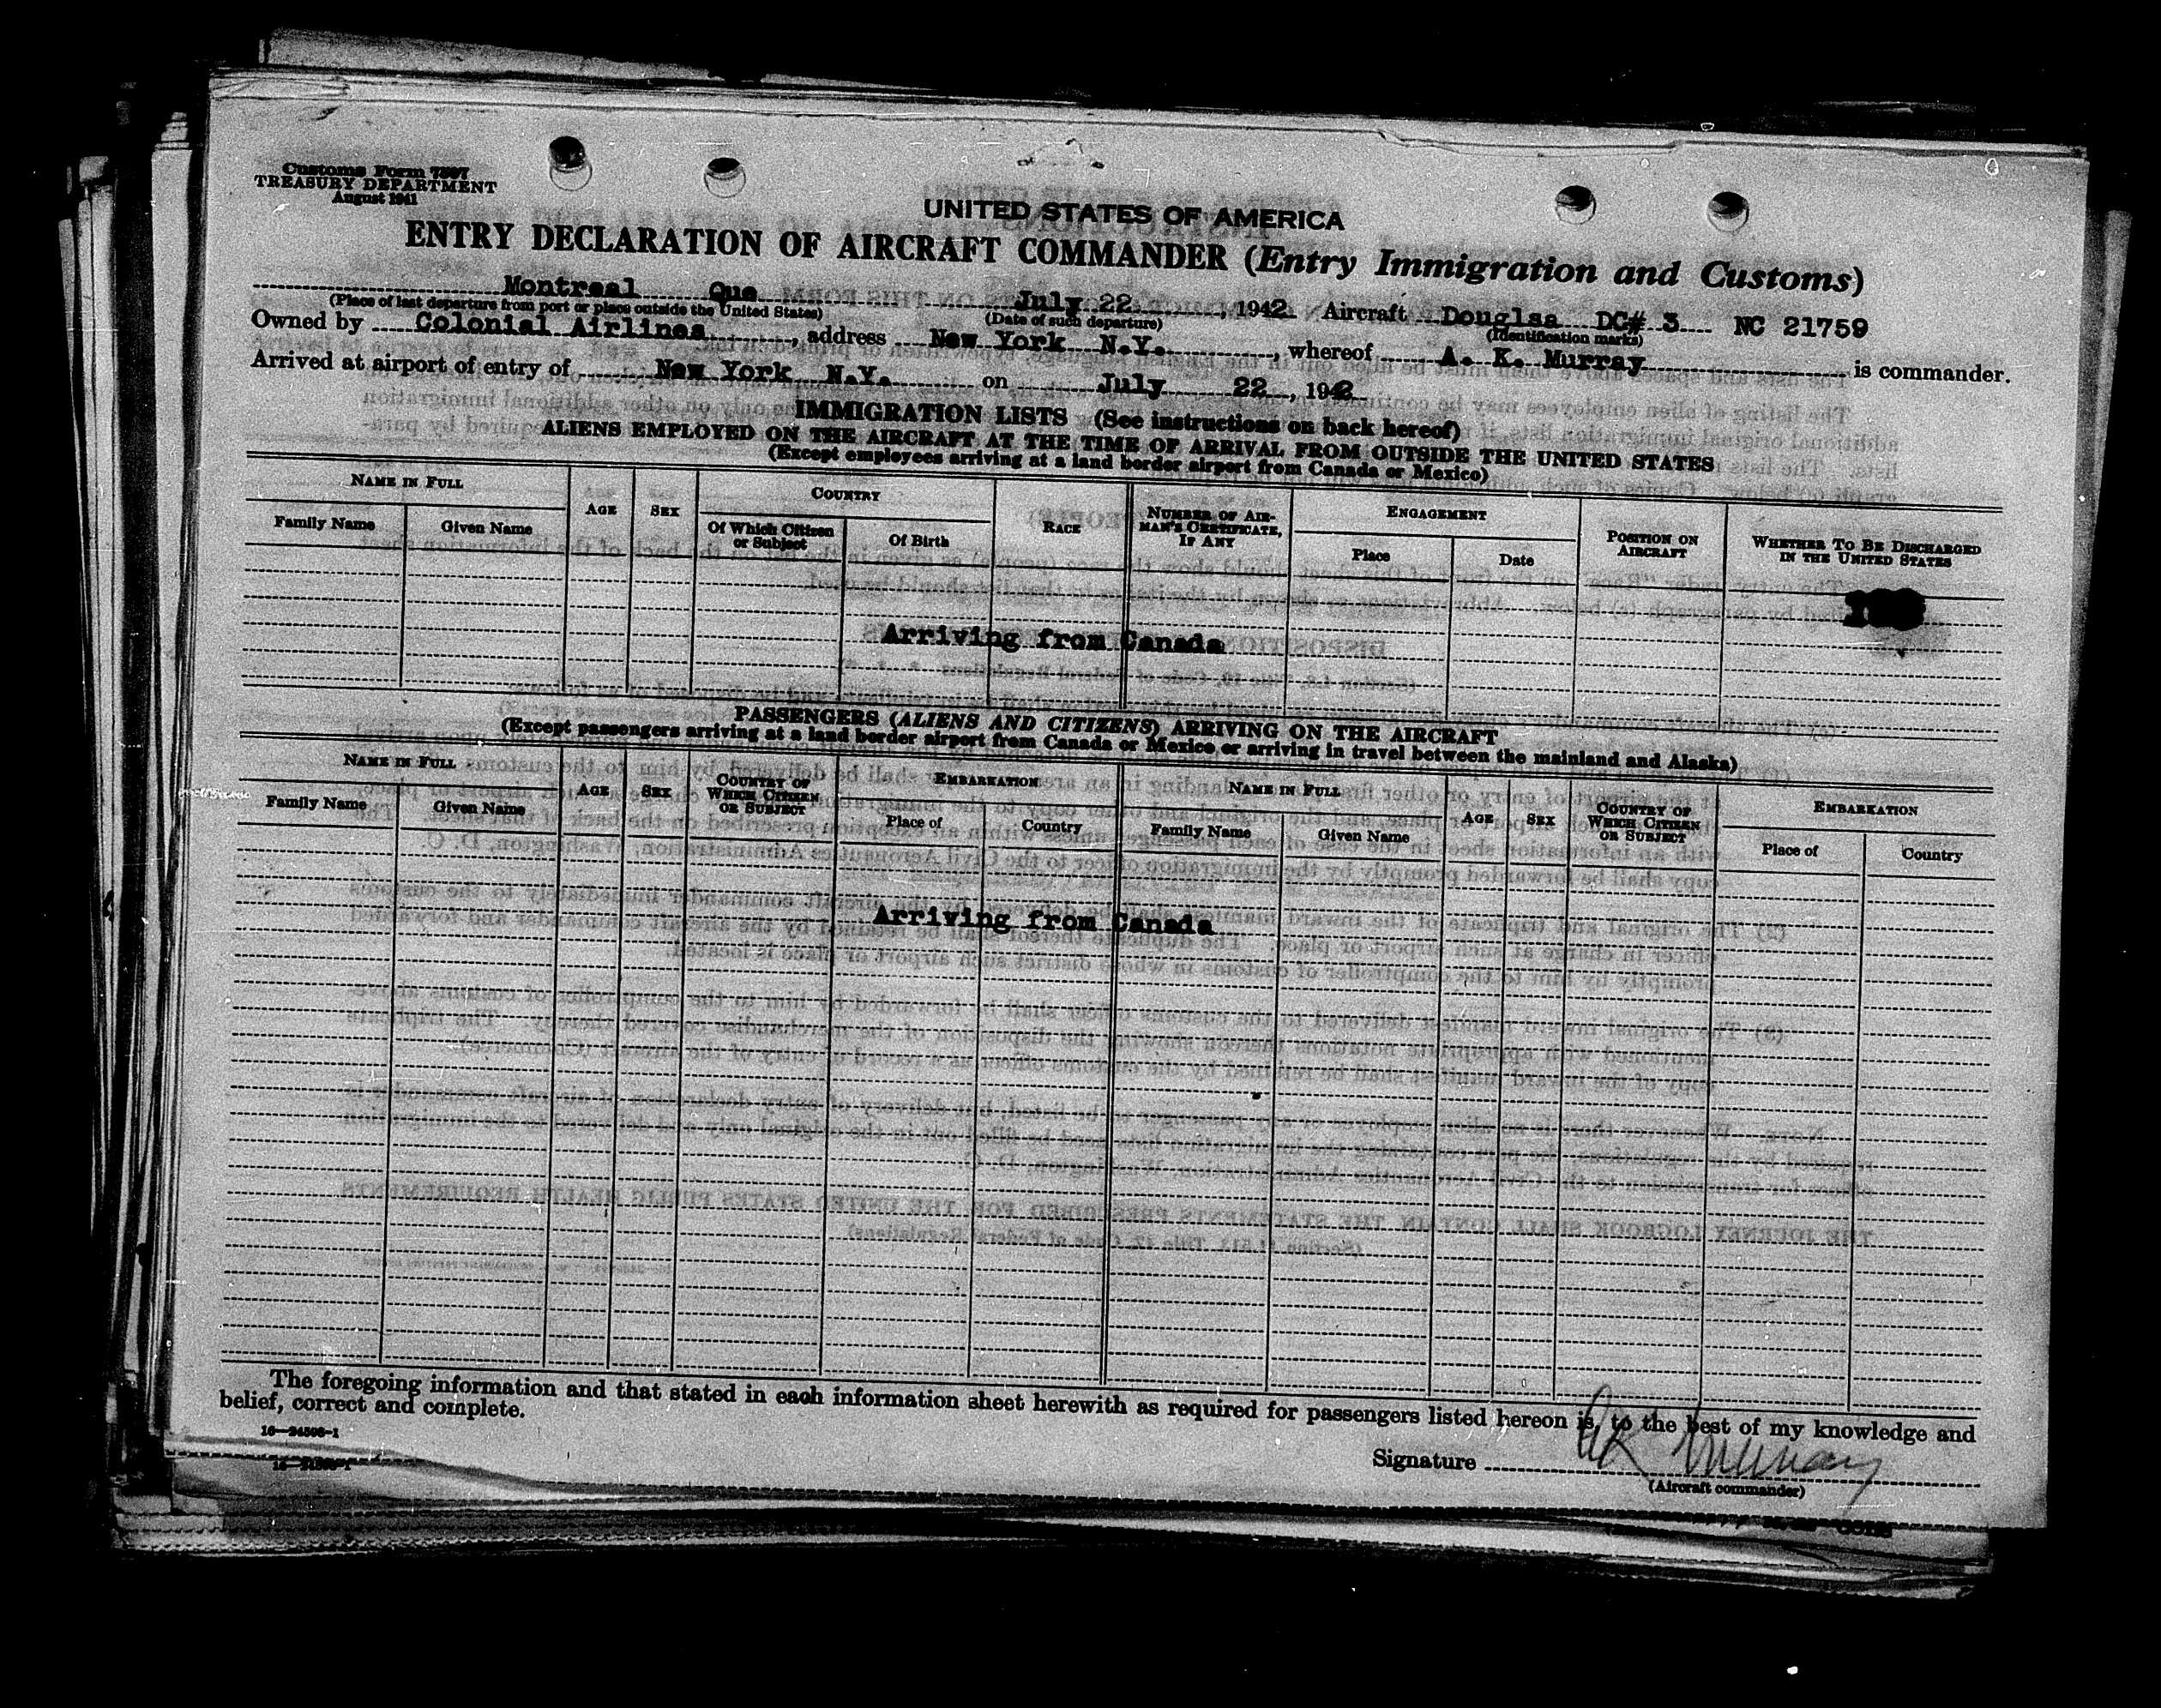 Customs Form 7507
TREASURY DEPARTMENT
August 1941
UNITED STATES OF AMERICA
ENTRY DECLARATION OF AIRCRAFT COMMANDER (Entry Immigration and Customs)
Montreal Que July 22, 1942 Aircraft Douglsa DC# 3 NC 21759
(Place of last departure from port or place outside the United States) (Date of such departure) (Identification marks)
Owned by Colonial Airlines, address New York N.Y., whereof A. K. Murray is commander.
Arrived at airport of entry of New York N.Y. on July 22, 1942
IMMIGRATION LISTS (See instructions on back hereof)
ALIENS EMPLOYED ON THE AIRCRAFT AT THE TIME OF ARRIVAL FROM OUTSIDE THE UNITED STATES
(Except employees arriving at a land border airport from Canada or Mexico)
NAME IN FULL AGE SEX COUNTRY RACE NUMBER OF AIRMAN'S CERTIFICATE, IF ANY ENGAGEMENT POSITION ON AIRCRAFT WHETHER TO BE DISCHARGED IN THE UNITED STATES
Family Name Given Name Of Which Citizen or Subject Of Birth Place Date
Arriving from Canada
PASSENGERS (ALIENS AND CITIZENS) ARRIVING ON THE AIRCRAFT
(Except passengers arriving at a land border airport from Canada or Mexico or arriving in travel between the mainland and Alaska)
NAME IN FULL AGE SEX COUNTRY OF WHICH CITIZEN OR SUBJECT EMBARKATION NAME IN FULL AGE SEX COUNTRY OF WHICH CITIZEN OR SUBJECT EMBARKATION
Family Name Given Name Place of Country Family Name Given Name Place of Country
Arriving from Canada
The foregoing information and that stated in each information sheet herewith as required for passengers listed hereon is, to the best of my knowledge and
belief, correct and complete.
16—24598-1
Signature AK Murray
(Aircraft commander)